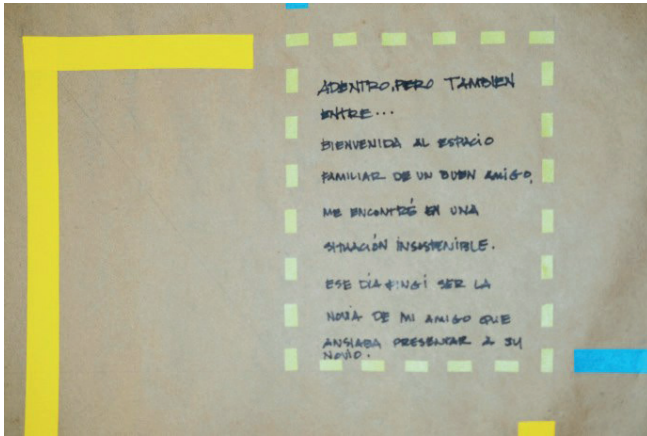 ADENTRO, PERO TAMBIEN
ENTRE...
BIENVENIDA AL ESPACIO
FAMILIAR DE UN BUEN AMIGO,
ME ENCONTRÉ EN UNA
SITUACIÓN INSOSTENIBLE.
ESE DÍA FINGI SER LA
NOVIA DE MI AMIGO QUE
ANSIABA PRESENTAR A SU
NOVIO.